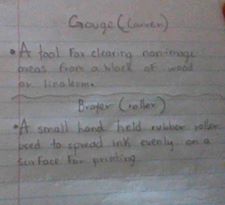 Gouge (carver)
• A tool for clearing non-image
areas from a block of wood
or linoleum.
Brayer (roller)
• A small hand held rubber roller
used to spread ink evenly on a
surface for printing.